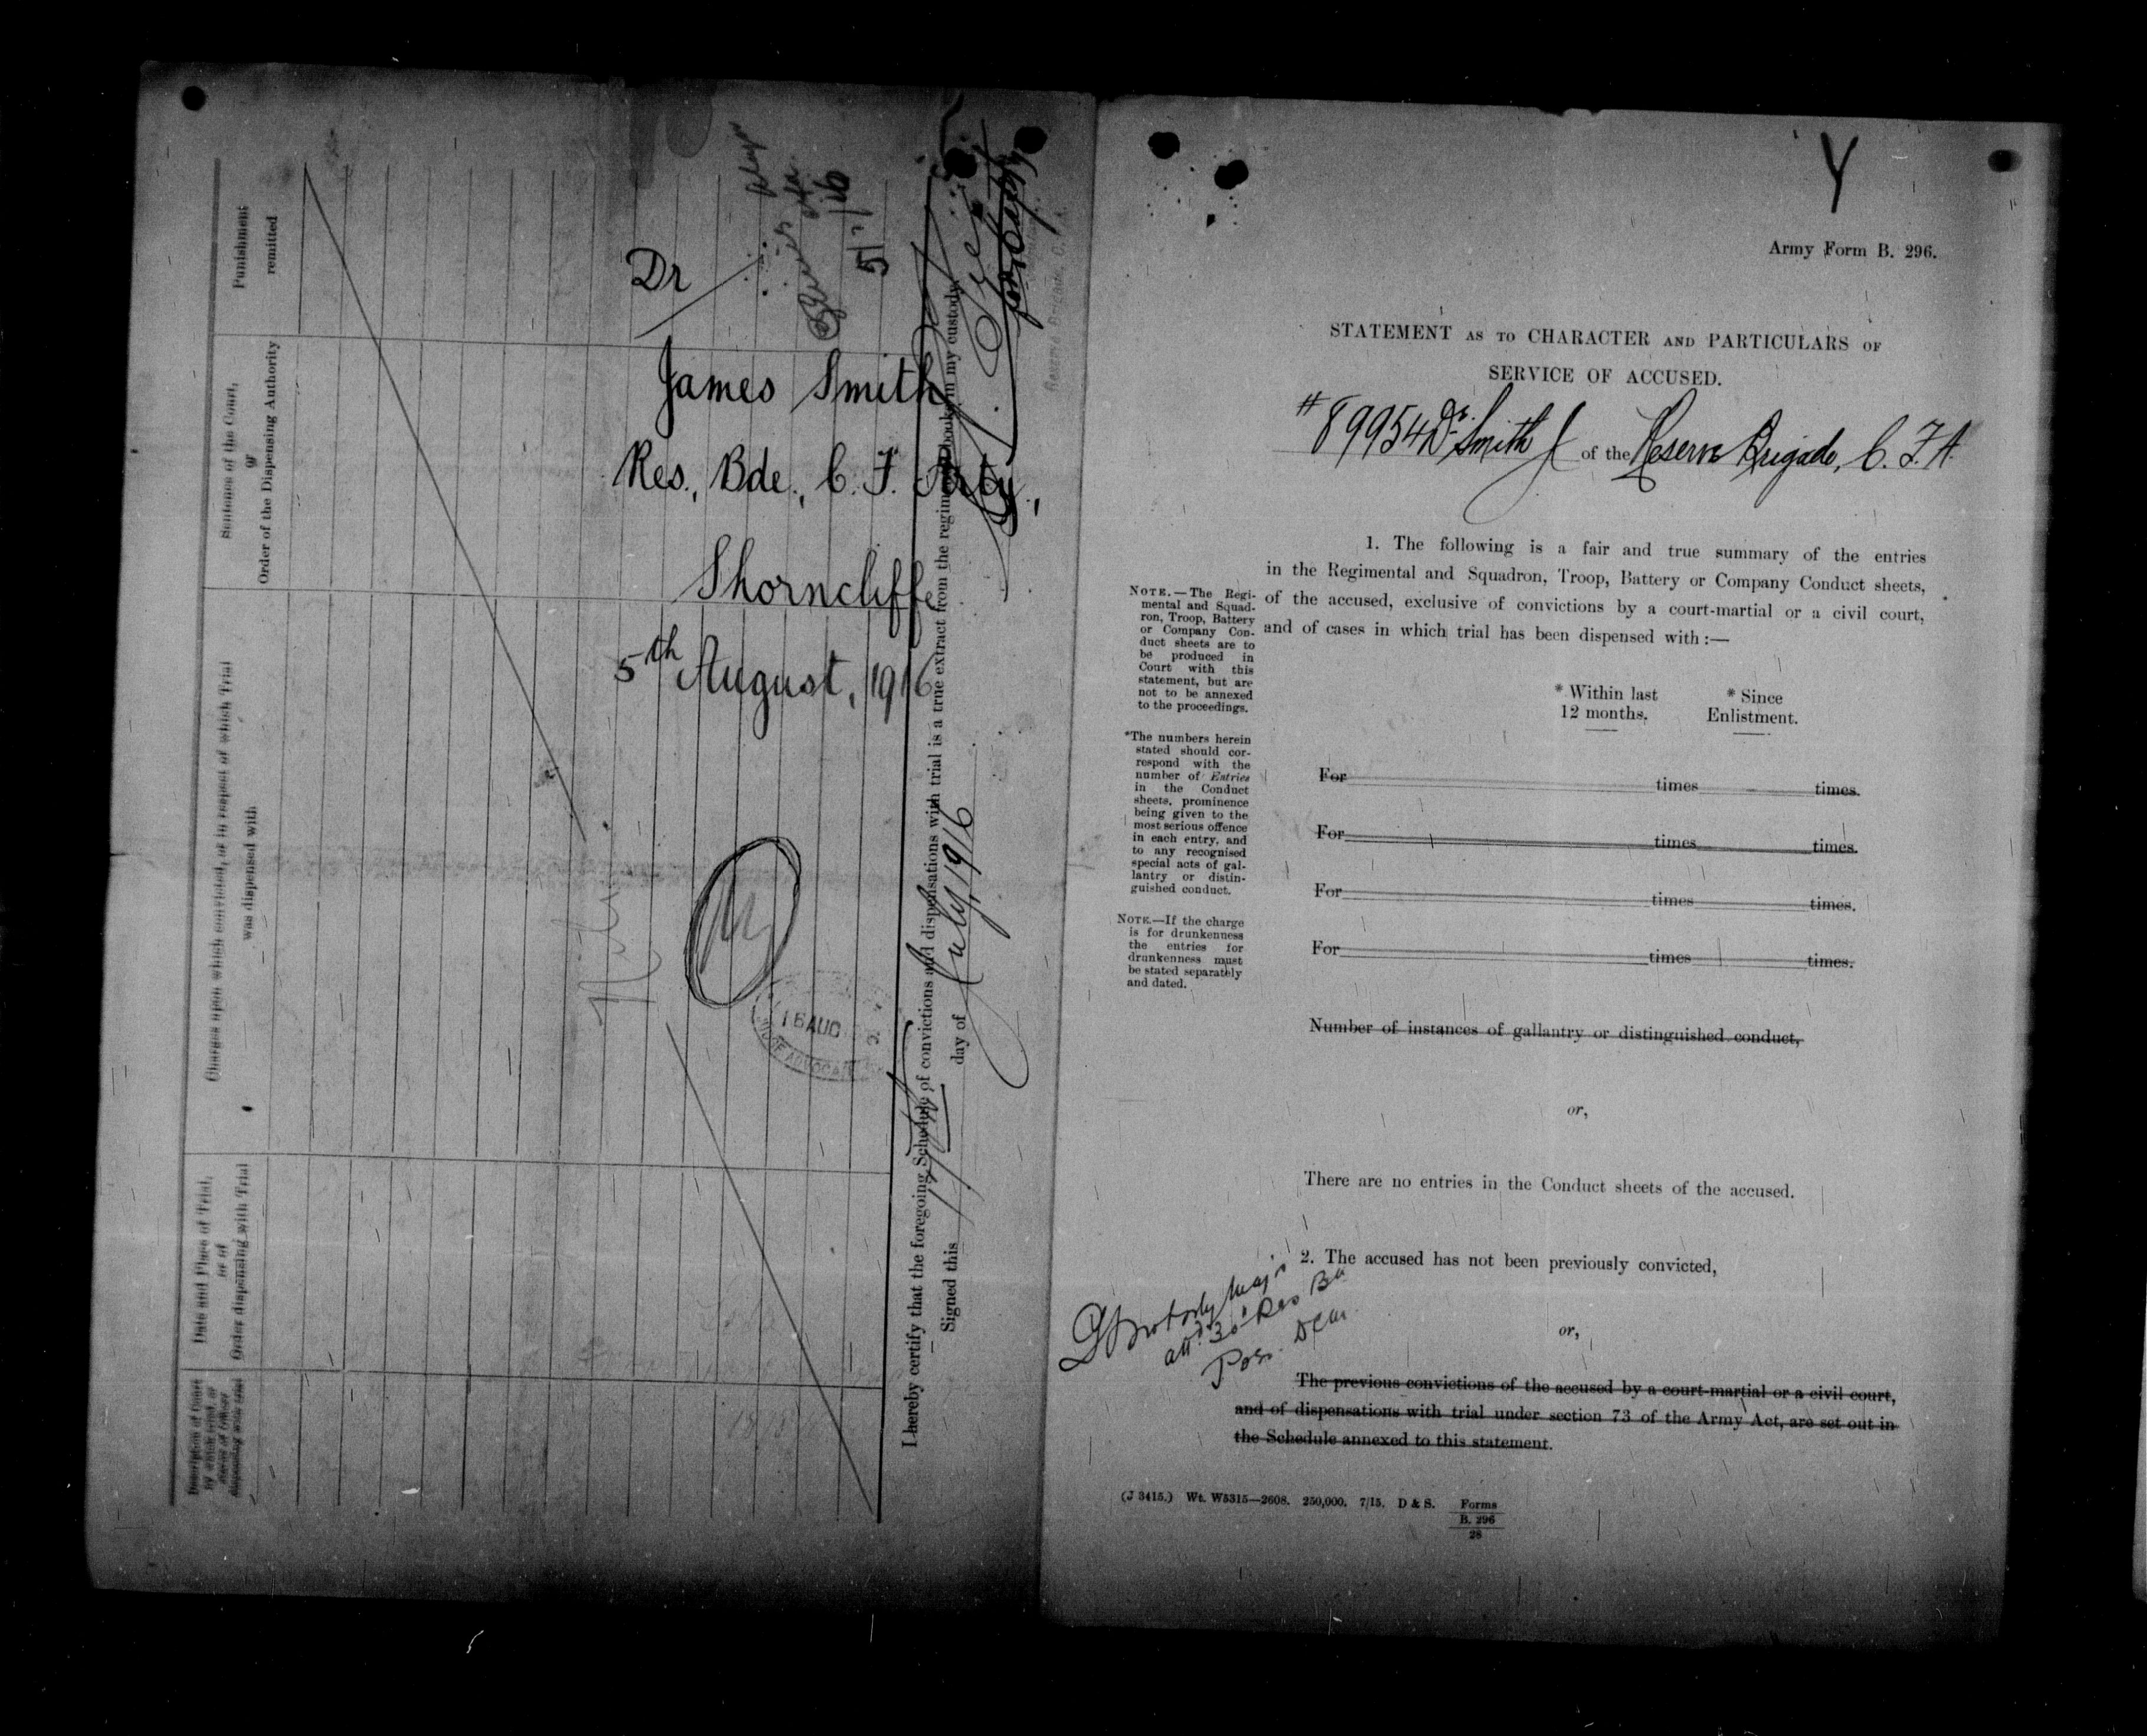 Punishment
remitted
Sentence of the Court,
or
Order of the Dispensing Authority
Charges upon which convicted, or in respect of which Trial
was dispensed with
Date and Place of Trial,
or of
Order dispensing with Trial
Dr
5/ /16
James Smith
Res., Bde., C. F. Arty.,
Shorncliffe
5th August, 1916
16 AUG
JUDGE ADVOCATE
I hereby certify that the foregoing Schedule of convictions and dispensations with trial is a true extract from the regimental books in my custody.
Signed this 17th day of July, 1916
Y
Army Form B. 296.
STATEMENT AS TO CHARACTER AND PARTICULARS OF
SERVICE OF ACCUSED.
# 89954 Dr. Smith J of the Reserve Brigade, C. F. A.
1. The following is a fair and true summary of the entries
in the Regimental and Squadron, Troop, Battery or Company Conduct sheets,
of the accused, exclusive of convictions by a court-martial or a civil court,
and of cases in which trial has been dispensed with :—
NOTE.—The Regi-
mental and Squad-
ron, Troop, Battery
or Company Con-
duct sheets are to
be produced in
Court with this
statement, but are
not to be annexed
to the proceedings.
*The numbers herein
stated should cor-
respond with the
number of Entries
in the Conduct
sheets, prominence
being given to the
most serious offence
in each entry, and
to any recognised
special acts of gal-
lantry or distin-
guished conduct.
NOTE.—If the charge
is for drunkenness
the entries for
drunkenness must
be stated separately
and dated.
* Within last
12 months.
* Since
Enlistment.
For times times.
For times times.
For times times.
For times times.
Number of instances of gallantry or distinguished conduct,
or,
There are no entries in the Conduct sheets of the accused.
2. The accused has not been previously convicted,
Major
att. 30 Res Bn
Pres. DCM
or,
The previous convictions of the accused by a court-martial or a civil court,
and of dispensations with trial under section 73 of the Army Act, are set out in
the Schedule annexed to this statement.
(J 3415.) Wt. W5315—2608. 250,000. 7/15. D & S. Forms
B. 296
28